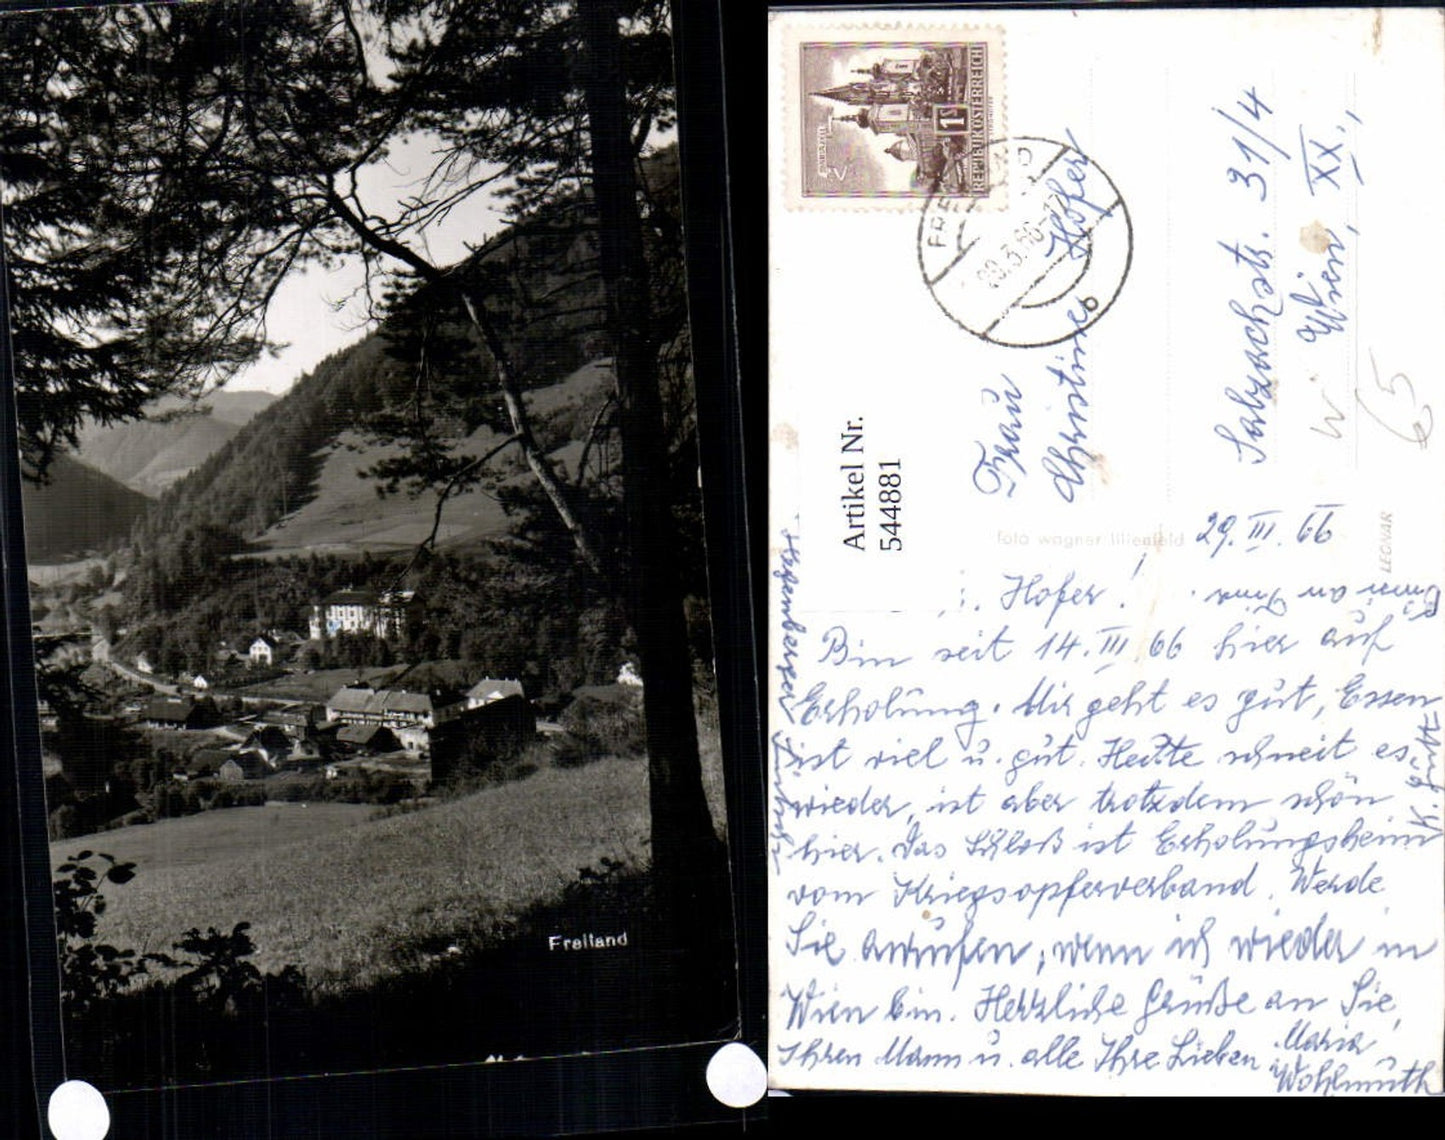 Freiland
REPUBLIK ÖSTERREICH
1 S
MARIAZELL
29.3.66
b
Artikel Nr.
544881
Frau
Christine Hofer
Salzachstr. 31/4
Wien, XX.,
W
65
foto wagner lilienfeld
LEONAR
29. III. 66
Hofer!
Bin seit 14. III. 66 hier auf
Erholung. Mir geht es gut, Essen
ist viel u. gut. Heute schneit es
wieder, ist aber trotzdem schön
hier. Das Schloß ist Erholungsheim
vom Kriegsopferverband. Werde
Sie anrufen, wenn ich wieder in
Wien bin. Herzliche Grüße an Sie,
Ihren Mann u. alle Ihre Lieben
Maria
Wohlmuth